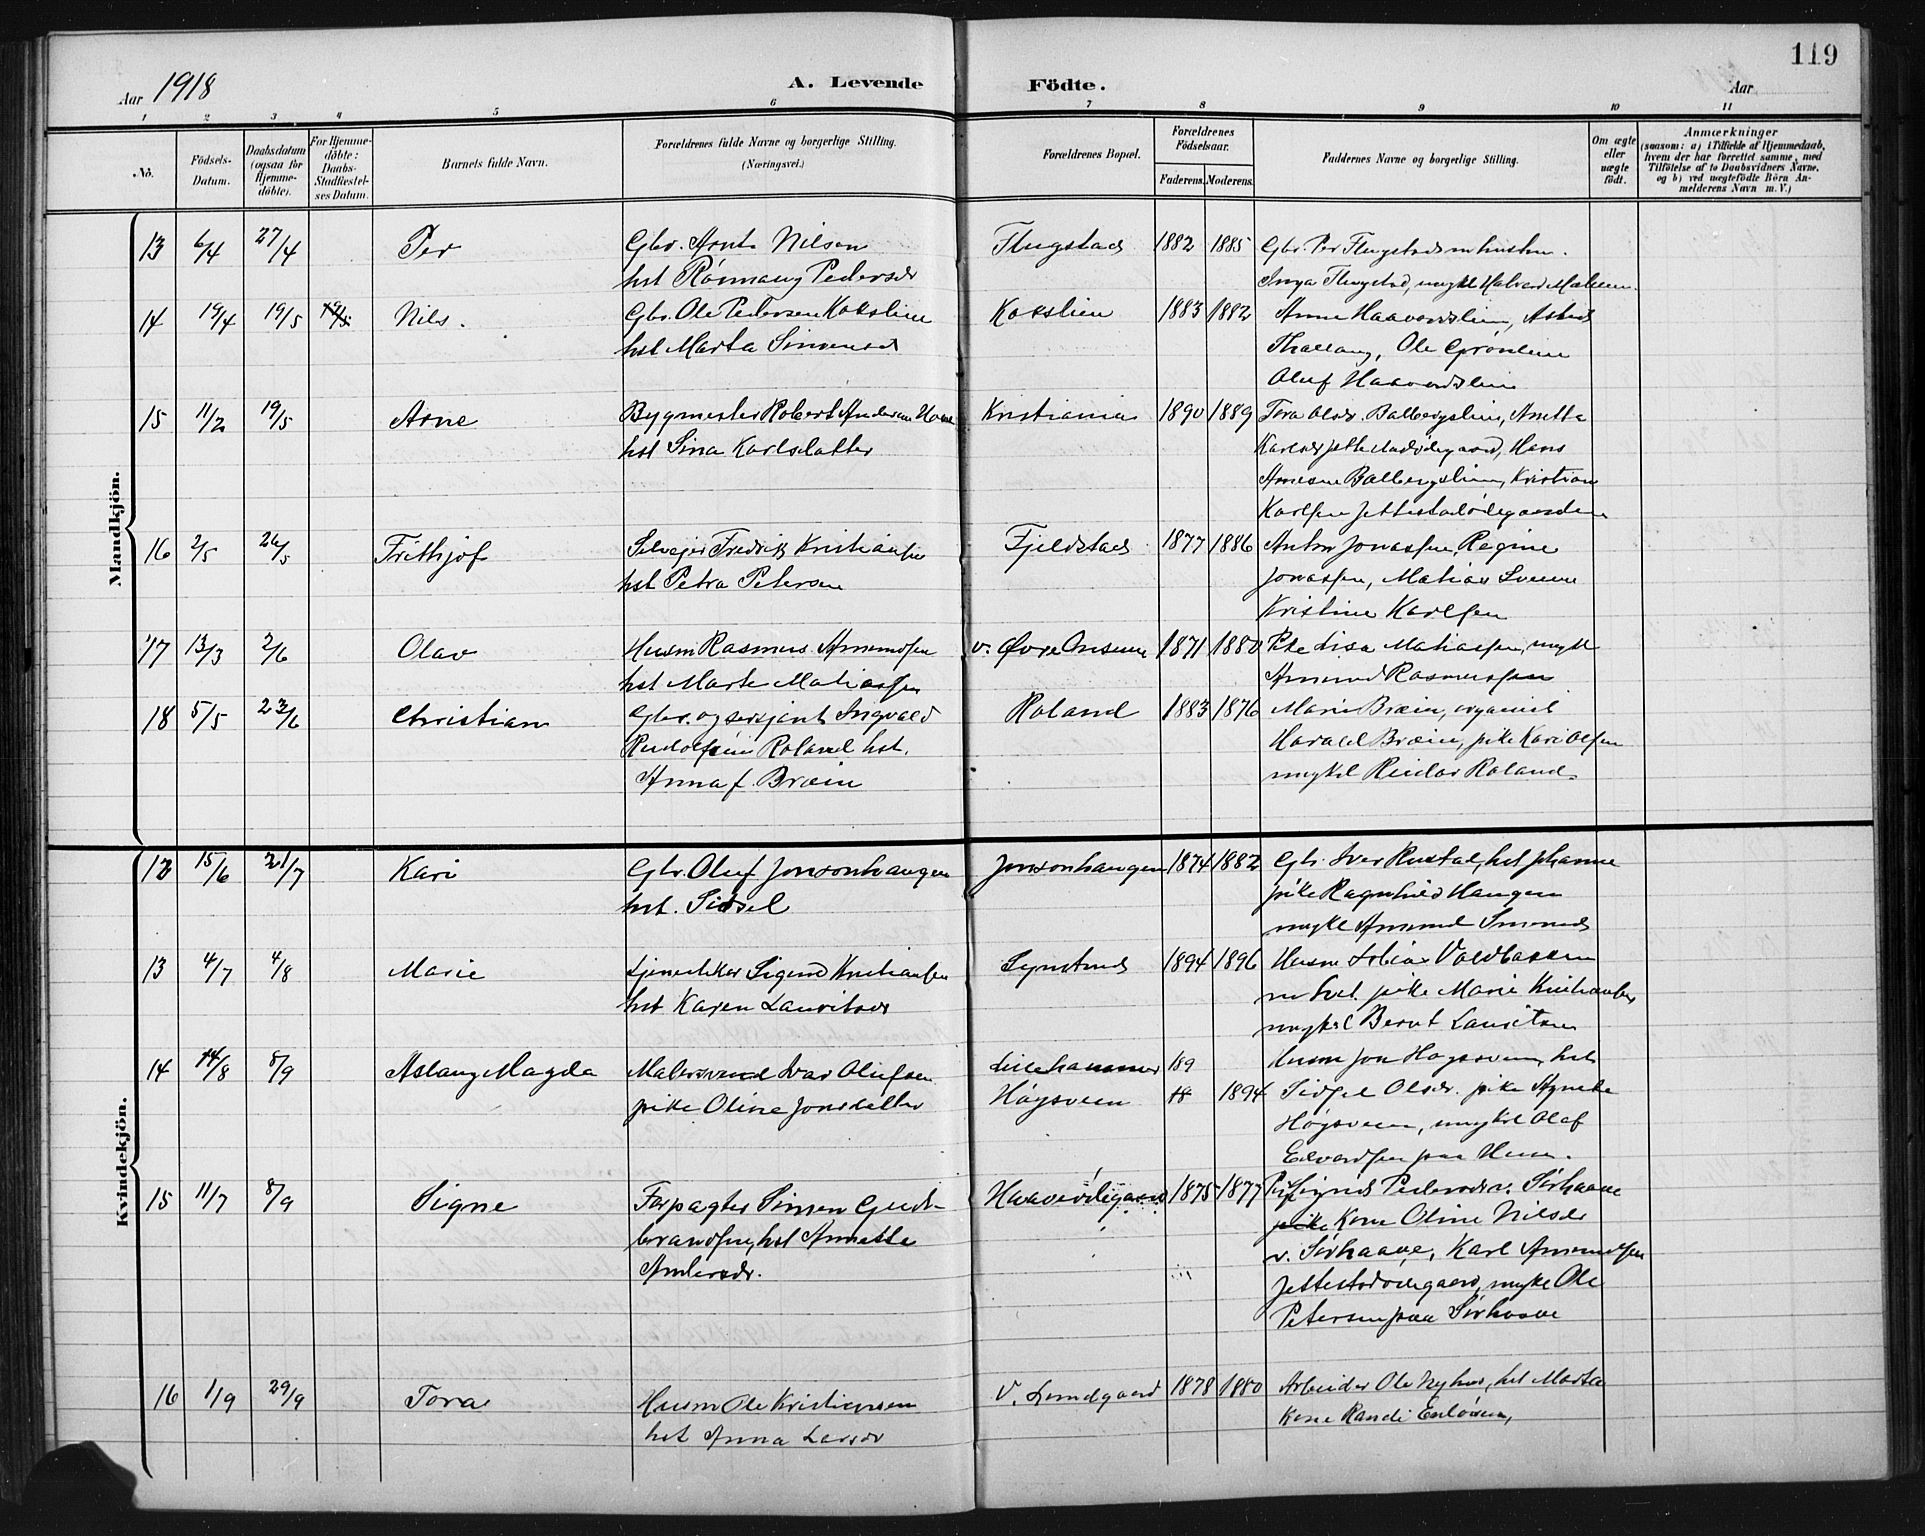 119
Aar 1918 A. Levende Födte. Aar
1 2 3 4 5 6 7 8 9 10 11
No.
Födsels-Datum.
Daabsdatum (ogsaa for Hjemmedöbte).
For Hjemmedöbte: Daabs-Stadfæstelses Datum.
Barnets fulde Navn.
Forældrenes fulde Navne og borgerlige Stilling. (Næringsvei.)
Forældrenes Bopæl.
Forældrenes Födselsaar.
Faderens. Moderens.
Faddernes Navne og borgerlige Stilling.
Om ægte eller uægte födt.
Anmærkninger
(saasom: a) i Tilfælde af Hjemmedaab, hvem der har forrettet samme, med Tilföielse af to Daabsvidners Navne, og b) ved uægtefödte Börn Anmelderens Navn m. V.)
Mandkjön.
13 6/4 27/4 Per Gbr. Nilsen Flugstad 1882 1885 Gbr. Per Flugstad m hustru
hst Rönnaug Pedersdr Inga Flugstad, ungkl Halvard
14 19/4 19/5 19/5 Nils. Gbr. Ole Pedersen Kokslien Kokslien 1883 1882 Anne Haavardslien,
hst Marta Simensd Ole Grönlien
Oluf Haavardslien
15 11/2 19/5 Arne Bygmester Robert Andersen Kristiania 1890 1889 Tora Olsdr. Balbergslien, Anette
hst Sina Karlsdatter Karlsdr Jettestadödegaard, Hans
Arnesen Balbergslien, Kristian
Karlsen Jettestadödegaarden
16 2/5 26/5 Frithjof Selvejer Fredrik Kristiansen Fjeldstad 1877 1886 Anton Jonassen, Regine
hst Petra Petersen Jonassen, Matias
Kristine Karlsen
17 13/3 2/6 Olav Husm Rasmus Amundsen v. Øvre 1871 1880 Pike Lisa Matiassen, ungkl
hst Marte Matiassen Amund Rasmussen
18 5/5 23/6 Christian Gbr. og sersjant Ingvald Roland 1883 1876 Marie Bræin, organist
Roland hst. Harald Bræin, pike Kari Olsen
Anna f. Bræin ungkl Reidar Roland.
Kvindekjön.
12 15/6 21/7 Kari Gbr. Oluf Jonsonhaugen Jonsonhaugen 1874 1882 Gbr. Iver Rustad, hst Johanne
hst. Sidsel pike Ragnhild Haugen
ungkl Amund
13 4/7 4/8 Marie Sigurd Kristiansen 1894 1896 Husm Tobias
hst Karen Lauritsdr m hst. pike Marie Kristiansen
ungkl Bernt Lauritsen
14 14/8 8/9 Aslaug Magda Malersvend Ivar Olufsen Lillehammer 189 Husm Jon Høgsveen, hst
pike Oline Jonsdatter Høgsveen 18 1894 Sidsel Olsdr. pike Agnete
Høgsveen, ungkl Olaf
Edvardsen paa
15 11/7 8/9 Signe Forpagter Simen Gud- 1875 1877 Sigrid Pedersdr v. Sørhaave
brandsen, hst Annette pike Kone Oline Nilsdr
Andersdr. v. Sørhaave, Karl Amundsen
Jettestadødegaard, ungkl Ole
Petersen paa Sørhaave
16 1/9 29/9 Tora Husm Ole Kristiansen v. Lundgaard 1878 1880 Arbeider Ole Nyhus, hst Marta
hst Anna Larsdr Kone Randi